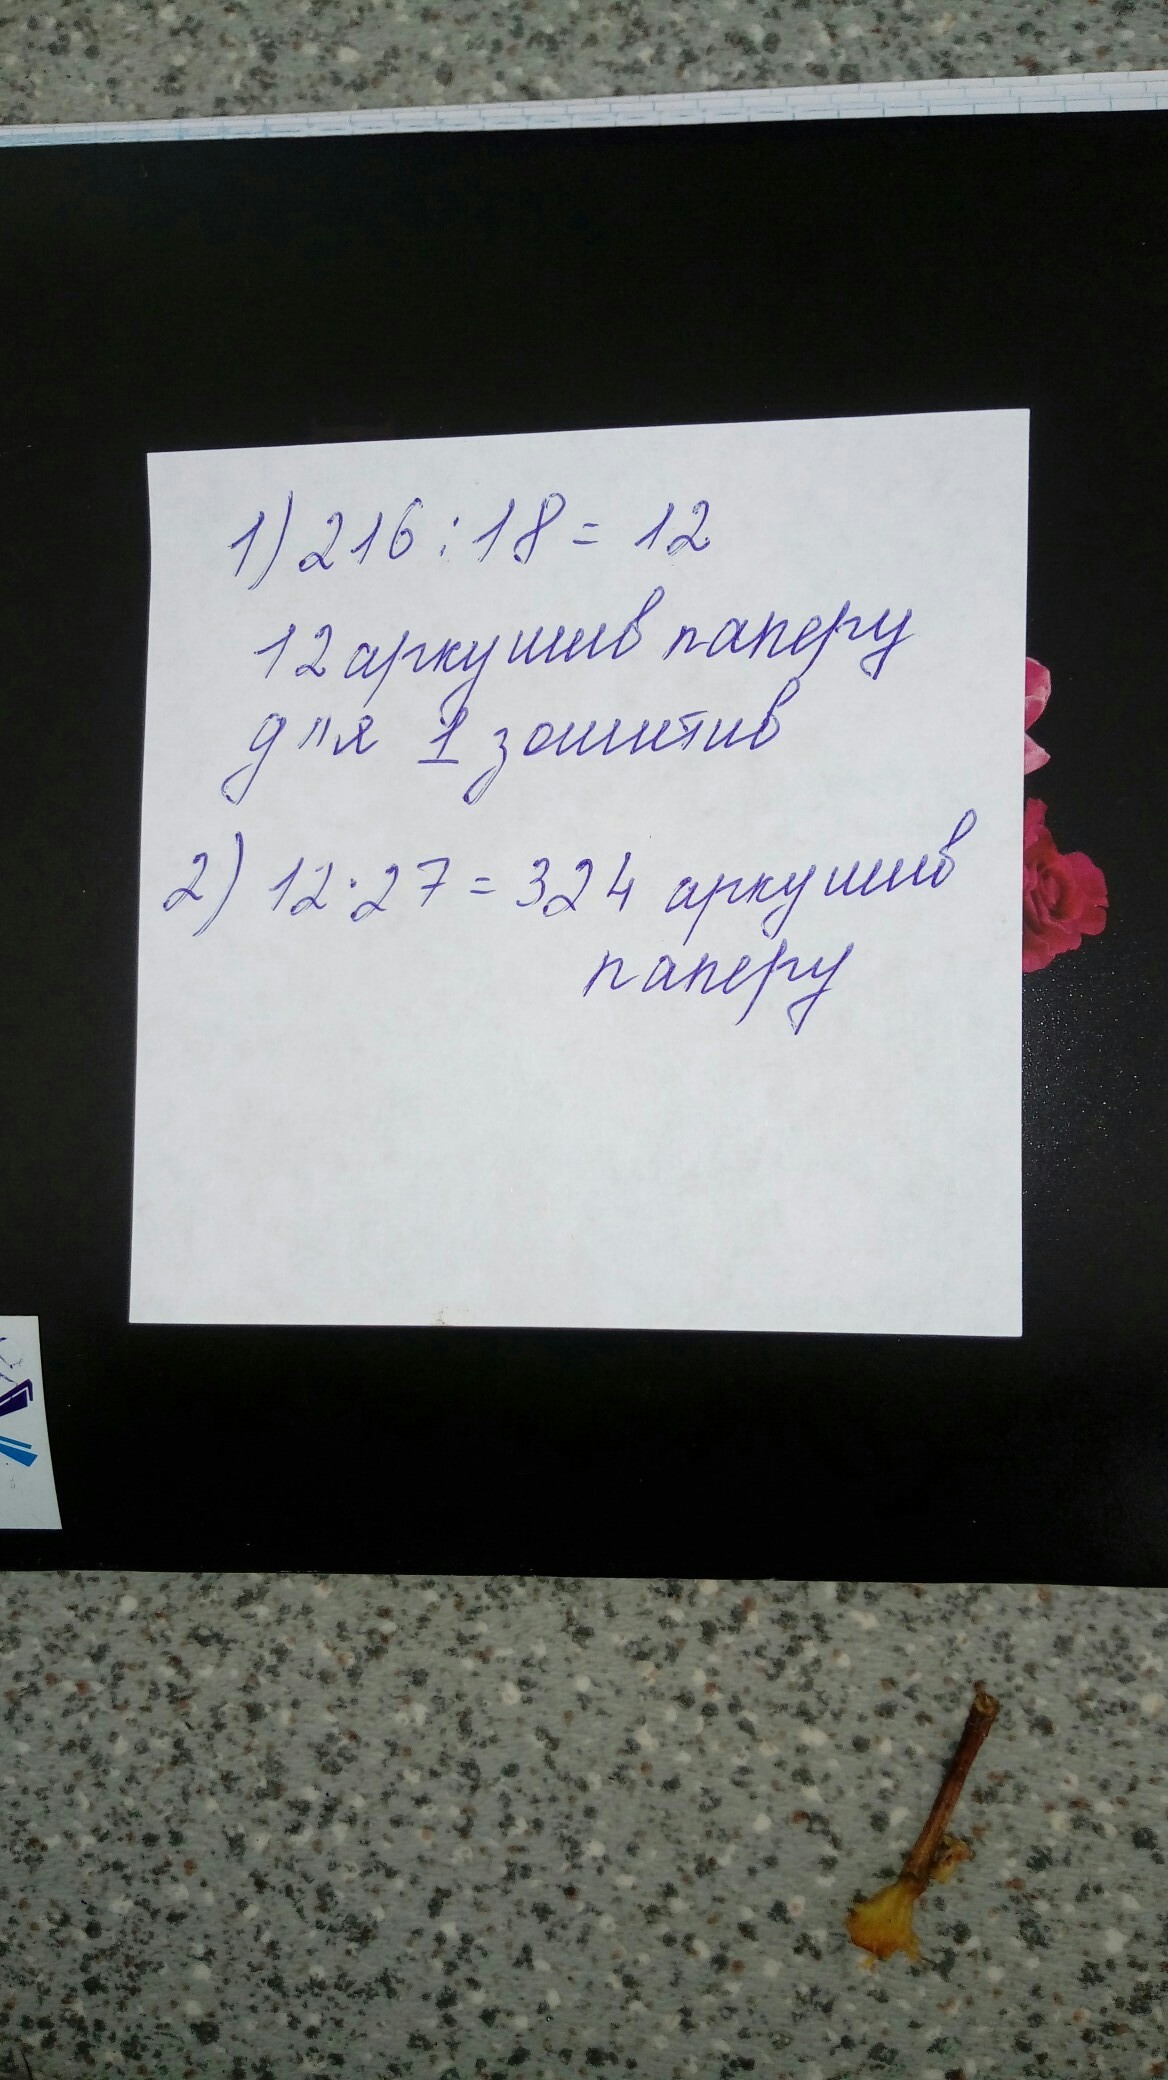 1) 216 : 18 = 12
12 аркушив паперу
для 1 зошитив
2) 12·27 = 324 аркушив
паперу